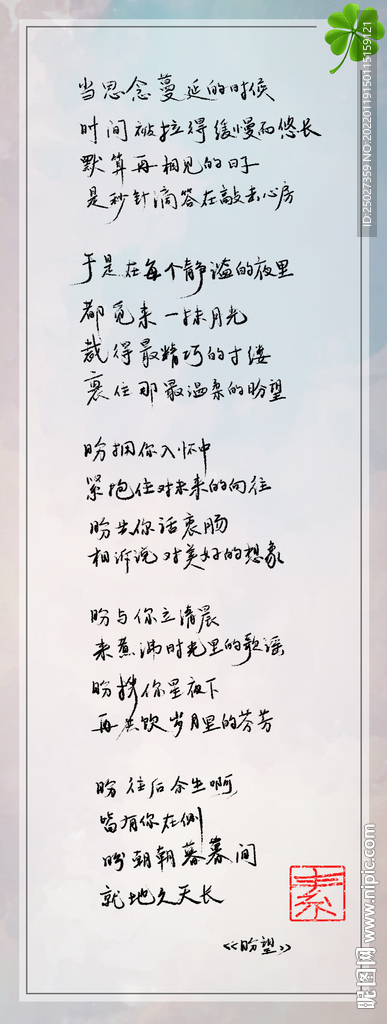 当思念蔓延的时候
时间被拉得缓慢而悠长
默算再相见的日子
是秒针滴答在敲击心房
于是在每个静谧的夜里
都觅来一抹月光
裁得最精巧的寸缕
裹住那最温柔的盼望
盼拥你入怀中
紧抱住对未来的向往
盼共你话衷肠
相诉说对美好的想象
盼与你立清晨
来煮沸时光里的歌谣
盼携你星夜下
再共饮岁月里的芬芳
盼往后余生啊
皆有你在侧
盼朝朝暮暮间
就地久天长
《盼望》
素
ID:25027359 NO:20220119150115159121
昵图网 www.nipic.com